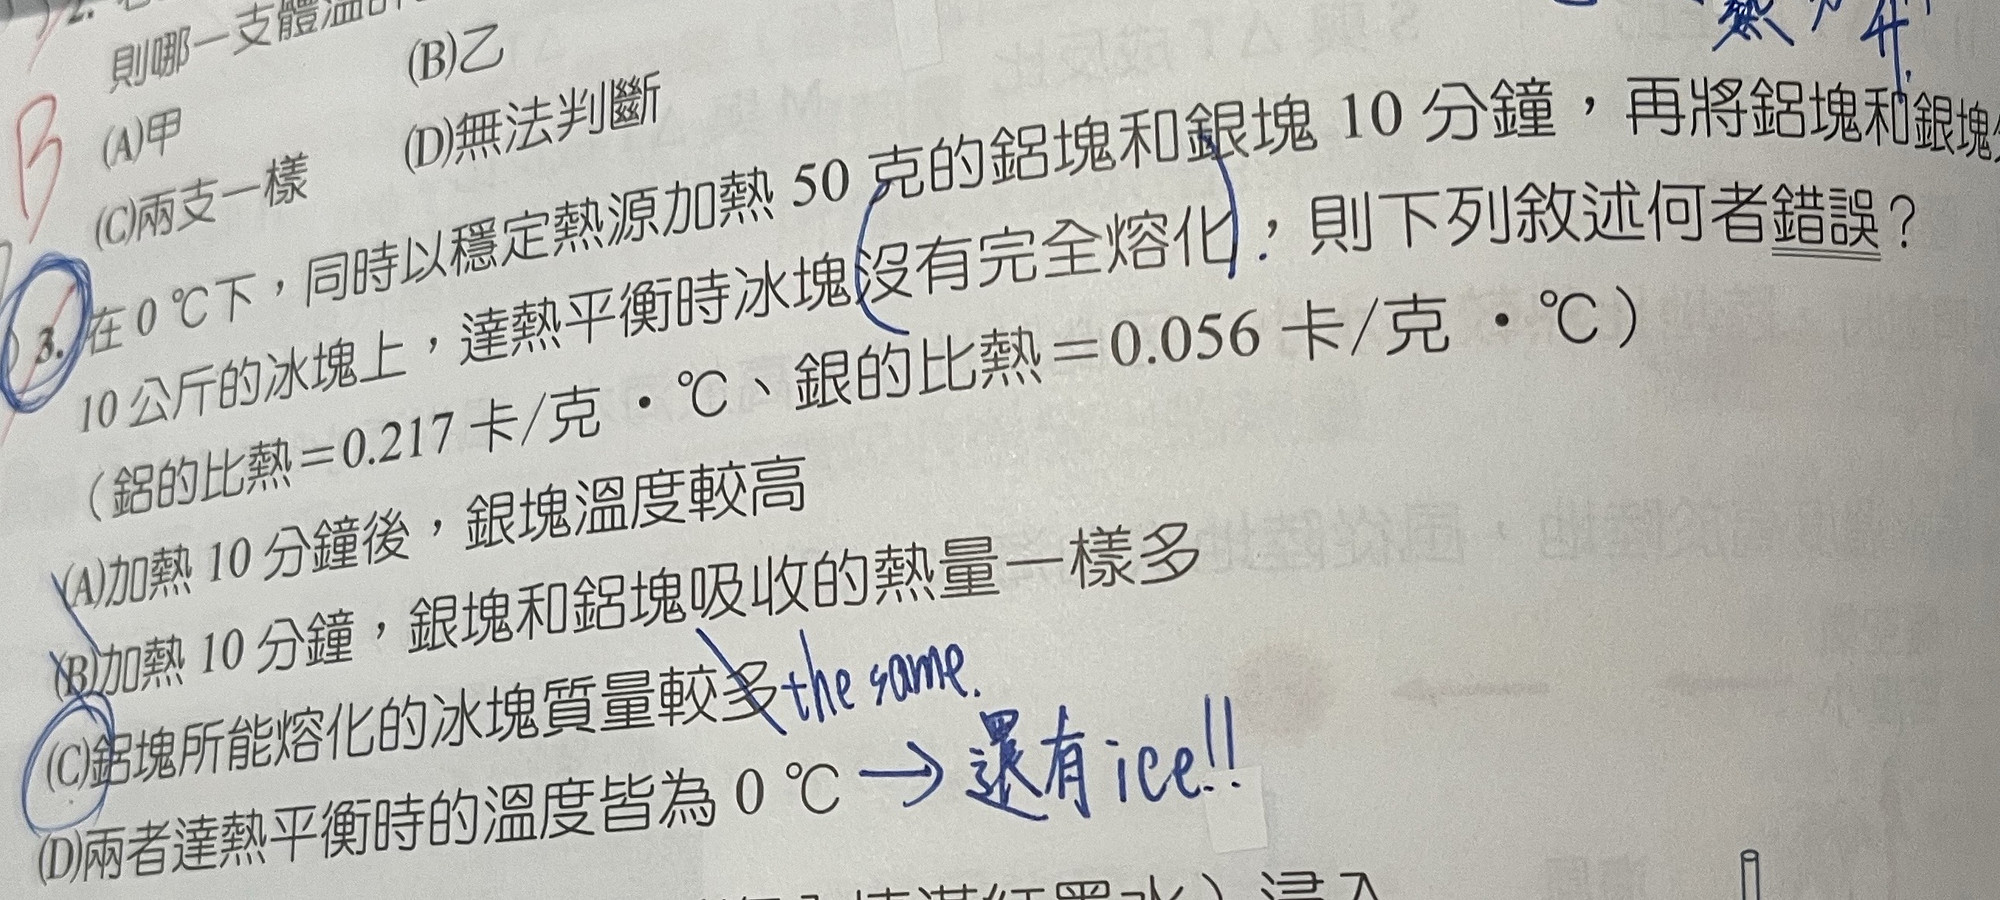 2.
則哪一支體溫計
(A)甲 (B)乙
(C)兩支一樣 (D)無法判斷
B
熱 升
3. 在 0 ℃下，同時以穩定熱源加熱 50 克的鋁塊和銀塊 10 分鐘，再將鋁塊和銀塊
10 公斤的冰塊上，達熱平衡時冰塊沒有完全熔化，則下列敘述何者錯誤？
（鋁的比熱＝0.217 卡/克・℃、銀的比熱＝0.056 卡/克・℃）
(A)加熱 10 分鐘後，銀塊溫度較高
(B)加熱 10 分鐘，銀塊和鋁塊吸收的熱量一樣多
(C)鋁塊所能熔化的冰塊質量較多 the same.
(D)兩者達熱平衡時的溫度皆為 0 ℃ → 還有 ice!!